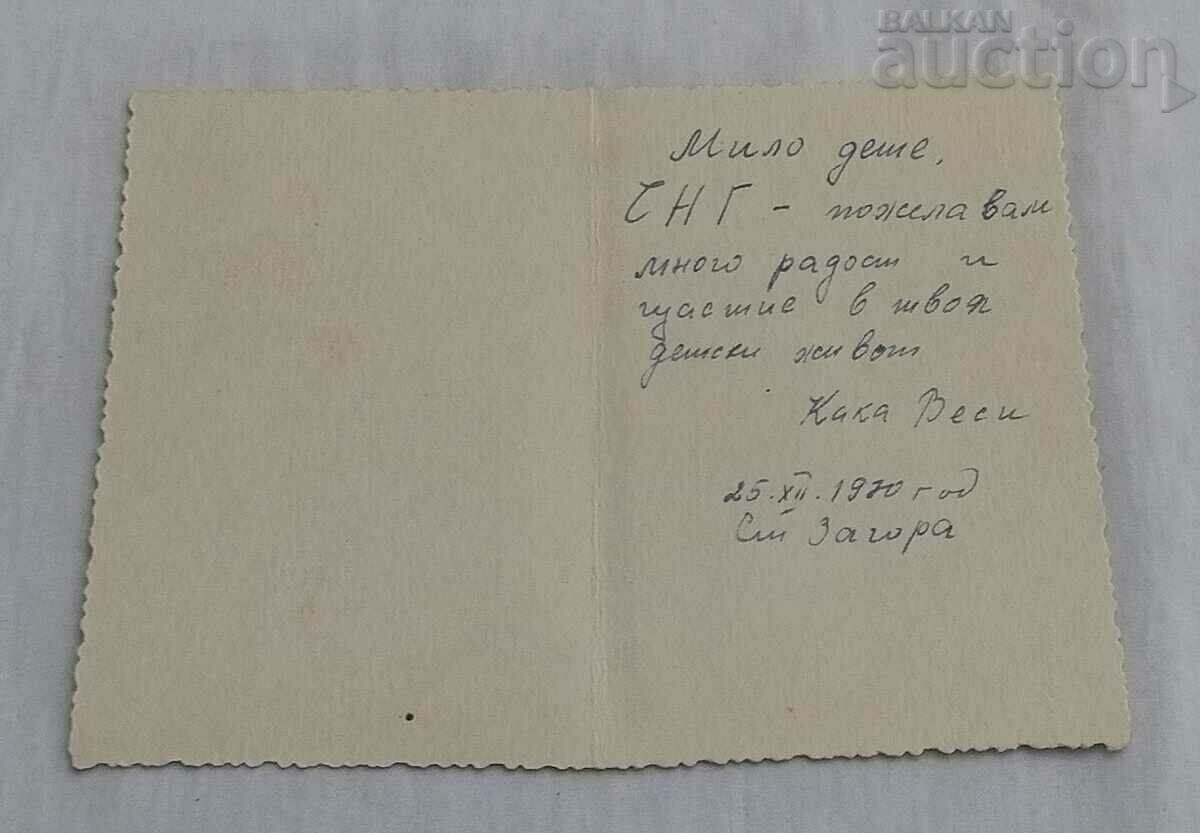 BALKAN
auction
Мило дете,
ЧНГ - пожелавам
много радост и
щастие в твоя
детски живот
Кака Веси
25.XII.1970 год
Ст Загора